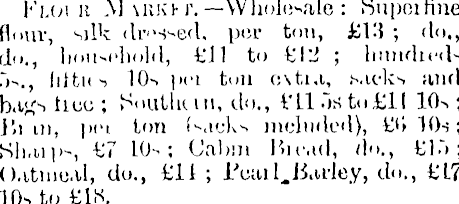 FLOUR MARKET.—Wholesale: Superfine
flour, silk dressed, per ton, £13; do.,
do., household, £11 to £12; hundred-
5s., fifties 10s per ton extra, sacks and
bags free; Southern, do., £11 5s to £11 10s;
Bran, per ton (sacks included), £6 10s;
Sharps, £7 10s; Cabin Bread, do., £15;
Oatmeal, do., £14; Pearl Barley, do., £17
10s to £18.